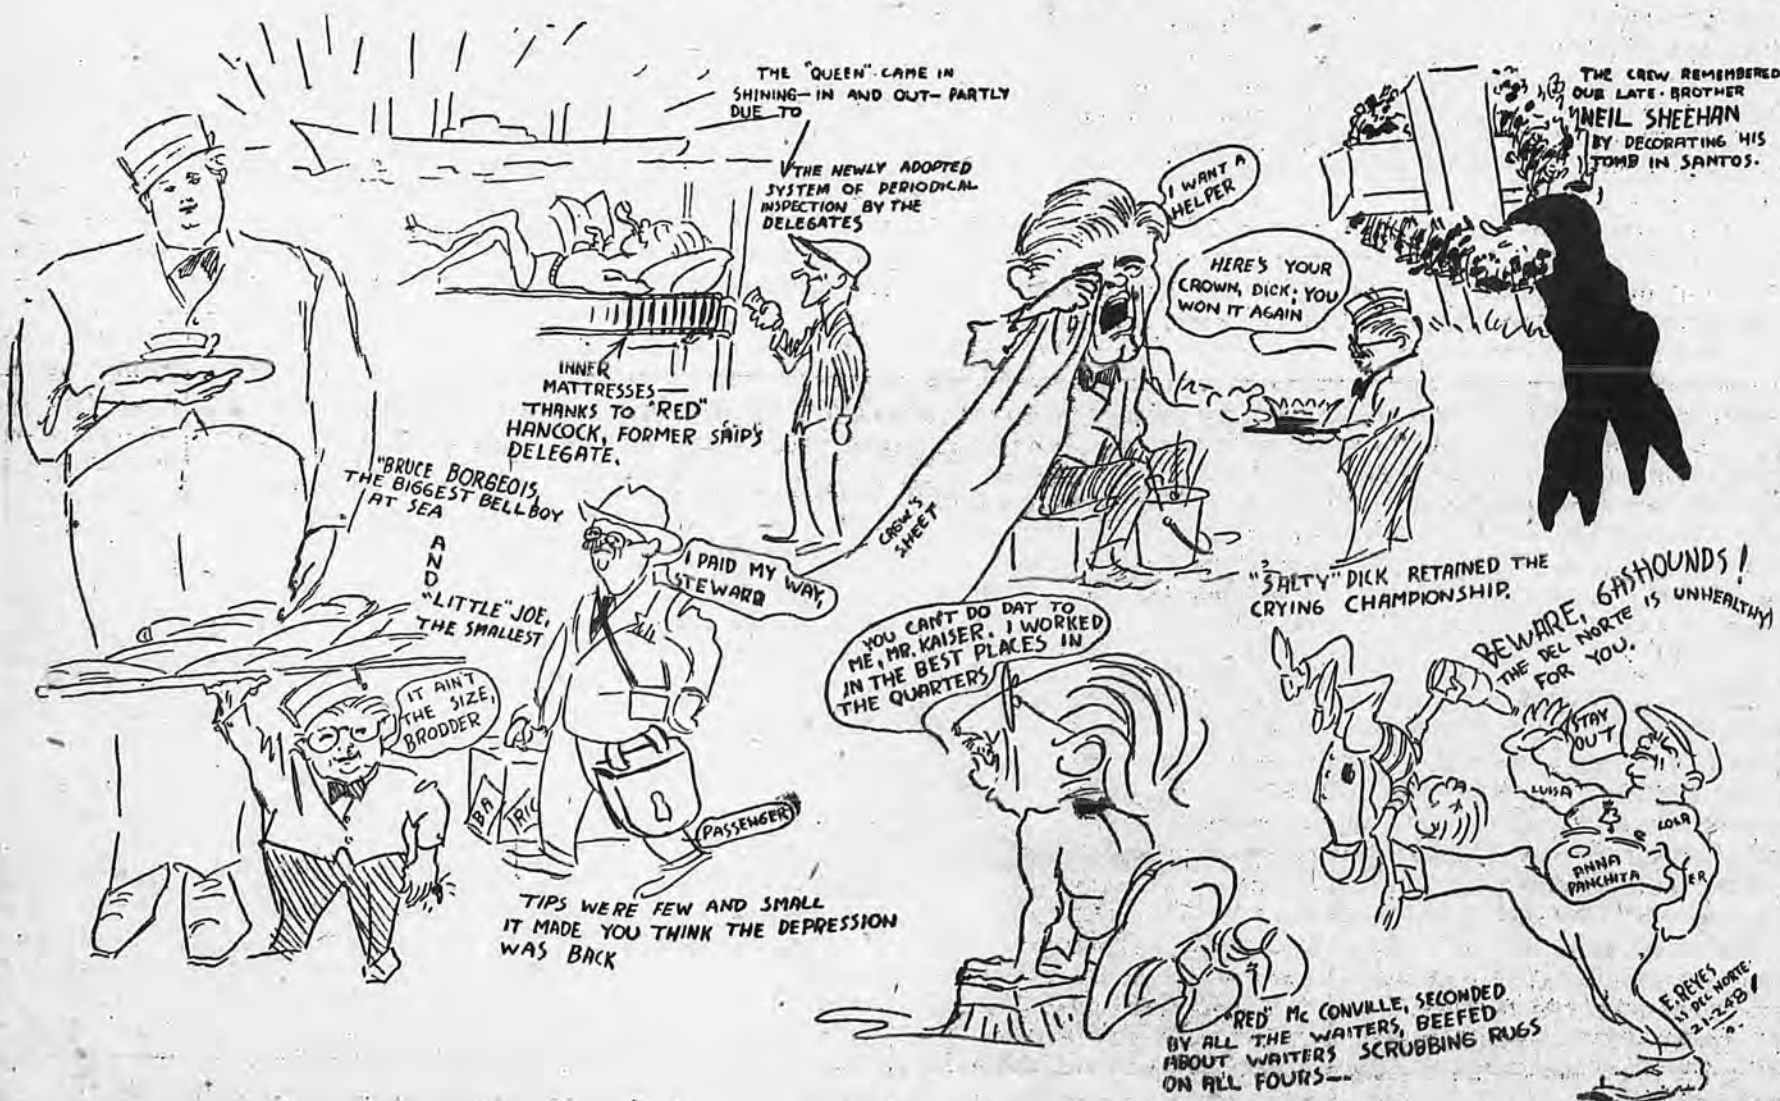 THE "QUEEN" CAME IN
SHINING—IN AND OUT—PARTLY
DUE TO
THE NEWLY ADOPTED
SYSTEM OF PERIODICAL
INSPECTION BY THE
DELEGATES
INNER
MATTRESSES—
THANKS TO "RED"
HANCOCK, FORMER SHIP'S
DELEGATE.
"BRUCE BORGEOIS,
THE BIGGEST BELLBOY
AT SEA
AND
"LITTLE" JOE,
THE SMALLEST
IT AIN'T
THE SIZE,
BRODDER
I PAID MY WAY,
STEWARD
BA
RIC
PASSENGER
TIPS WERE FEW AND SMALL
IT MADE YOU THINK THE DEPRESSION
WAS BACK
I WANT A
HELPER
HERE'S YOUR
CROWN, DICK; YOU
WON IT AGAIN
CREW'S
SHEET
"SALTY" DICK RETAINED THE
CRYING CHAMPIONSHIP.
THE CREW REMEMBERED
OUR LATE BROTHER
NEIL SHEEHAN
BY DECORATING HIS
TOMB IN SANTOS.
YOU CAN'T DO DAT TO
ME, MR. KAISER. I WORKED
IN THE BEST PLACES IN
THE QUARTERS
"RED" Mc CONVILLE, SECONDED
BY ALL THE WAITERS, BEEFED
ABOUT WAITERS SCRUBBING RUGS
ON ALL FOURS—
BEWARE, GASHOUNDS!
THE DEL NORTE IS UNHEALTHY
FOR YOU.
STAY
OUT
LUISA
LOLA
ANNA
PANCHITA
ER
E. REYES
SS DEL NORTE.